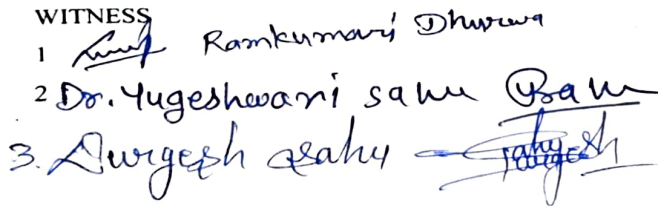 WITNESS
1 Ramkumari Dhurwa
2 Dr. Yugeshwari sahu Sahu
3. Durgesh Sahu